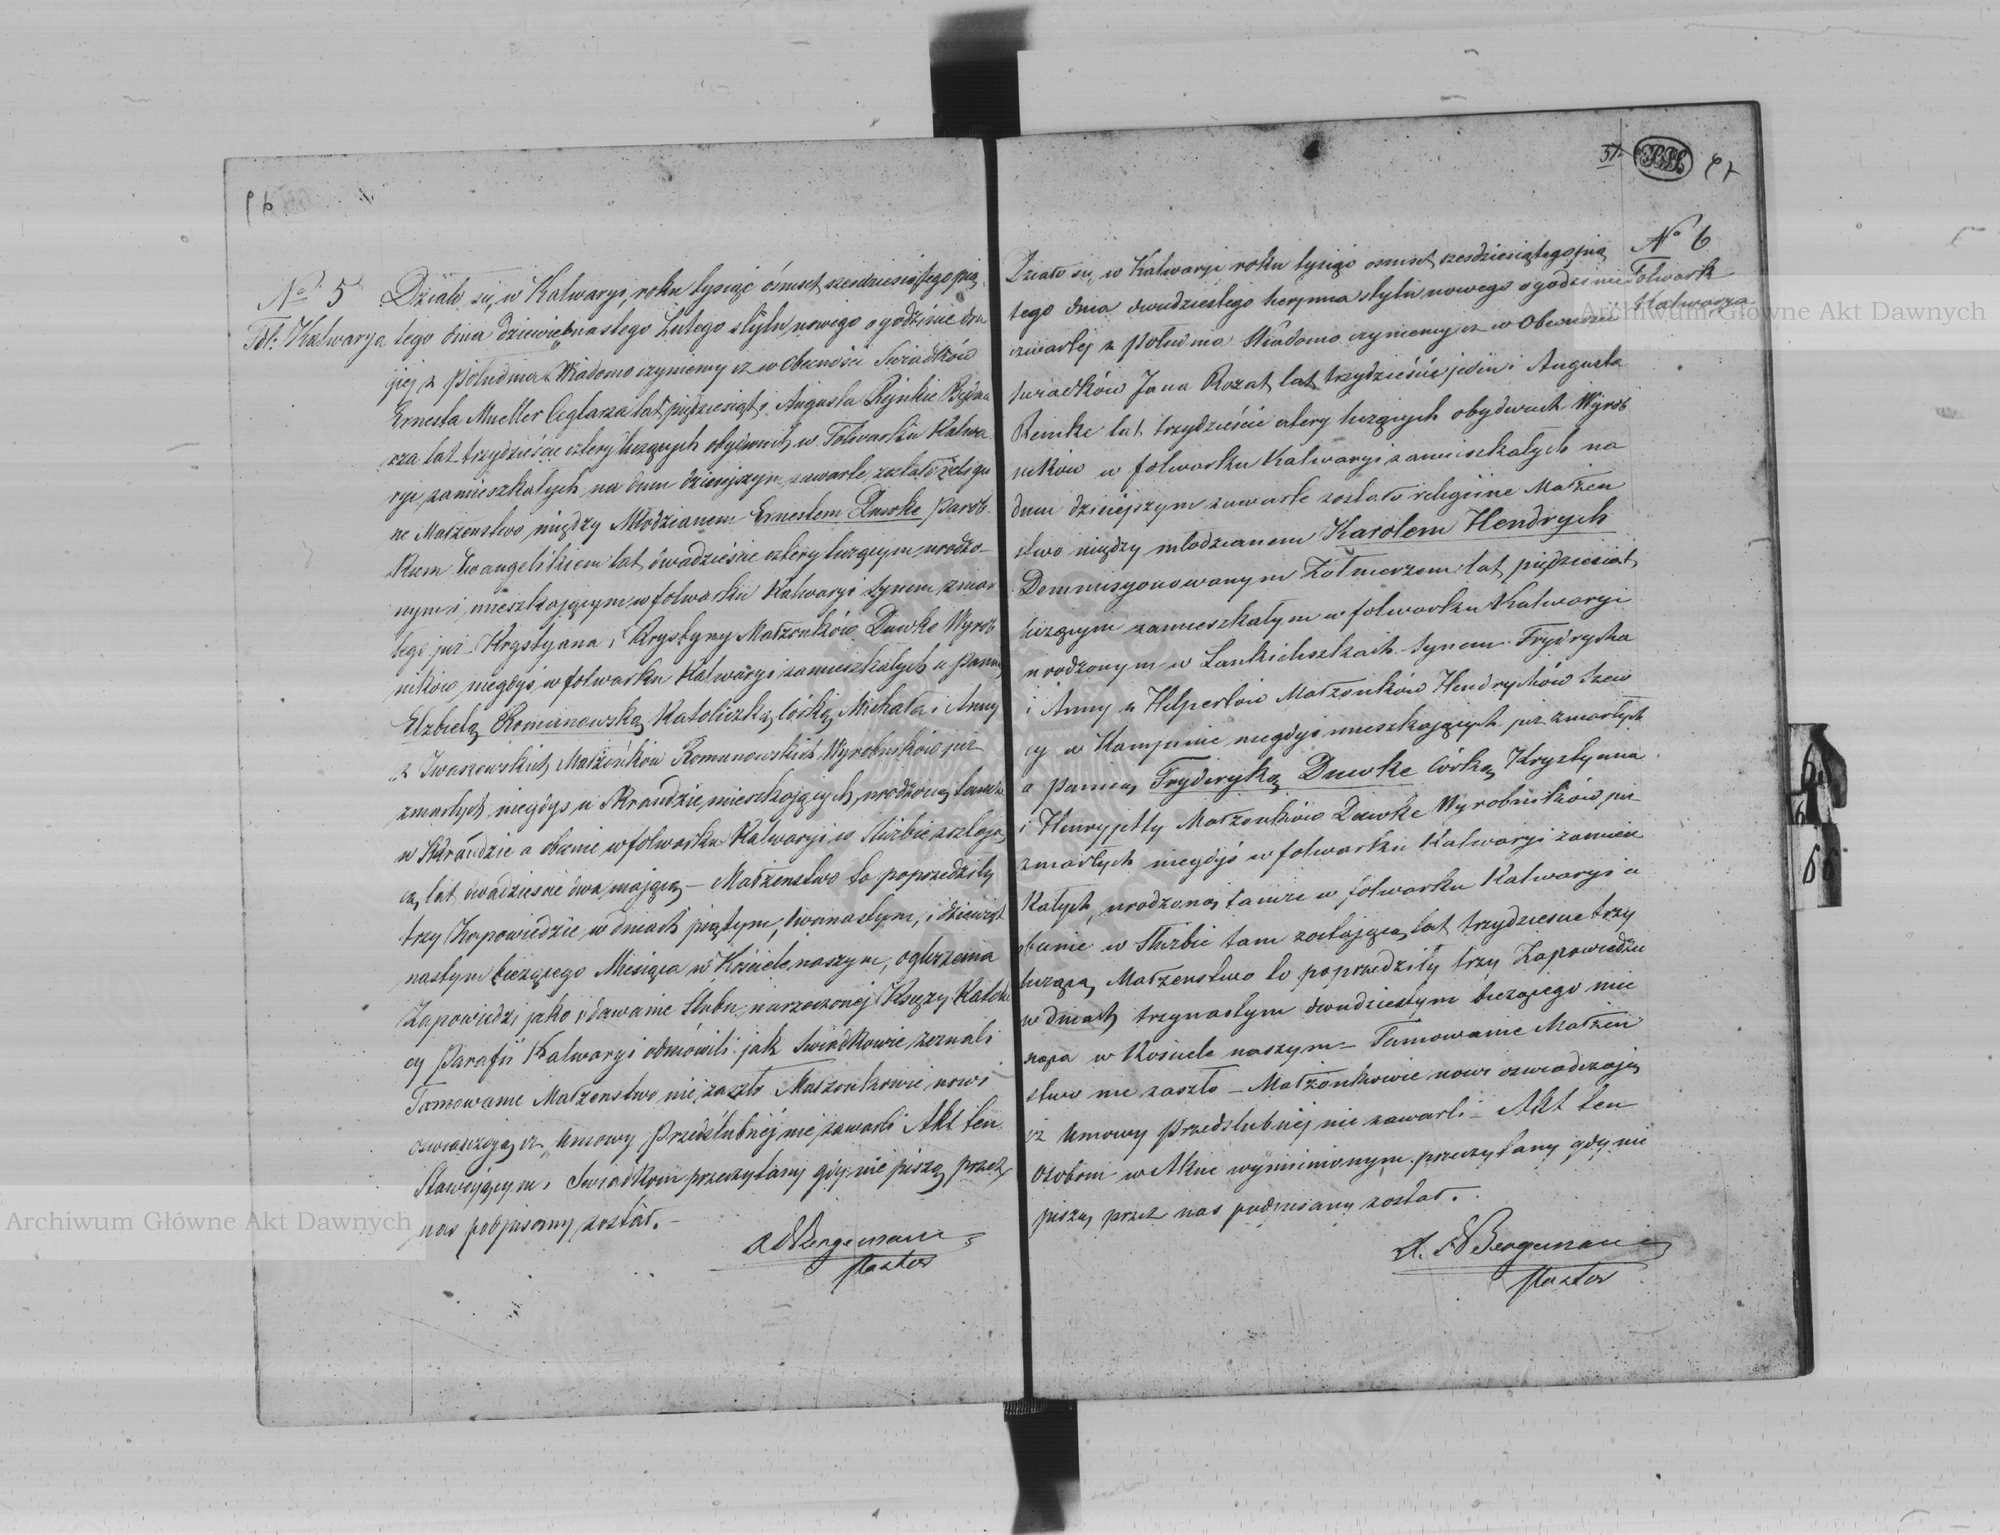 No 5
Fol: Kalwarya
Działo się, w Kalwaryi, roku tysiąc ośmset sześdziesiątego pią
tego dnia dziewiętnastego Lutego stylu nowego o godzinie dru
giej z południa Wiadomo czyniemy iż w Obecności Świadków
Ernesta Mueller Ceglarza lat pięćdziesiąt, i Augusta Rejnkie Bedna
rza lat trzydzieście cztery liczących obydwuch w Folwarku Kalwa
ryi zamieszkałych na dniu dzisiejszym zawarte zostało religij
ne Małżenstwo między Młodzianem Ernestem Duwke Parob
kiem Ewangelikiem lat dwadzieście cztery liczącym urodzo
nym i mieszkającym w folwarku Kalwaryi synem zmar
łego już Krystyana i Krystyny Małżonków Duwke Wyrob
ników, niegdyś w folwarku Kalwaryi zamieszkałych a Panną
Elżbietą Romanowską Katoliczką, córką Michała i Anny
z Iwaszewskich Małżonków Romanowskich Wyrobników już
zmarłych niegdyś w Skraudzie mieszkających, urodzoną tamże
w Skraudzie a obecnie w folwarku Kalwaryi w Służbie zostają
cą, lat dwadzieście dwa mającą – Małżenstwo to poprzedziły
trzy Zapowiedzie w dniach piątym, dwunastym, i dziewięt
nastym bieżącego Miesiąca w Kościele naszym, ogłoszenia
Zapowiedzi jako i dawanie Ślubu, narzeczonej Księży Katoli
cy Parafii Kalwaryi odmówili jak Świadkowie zeznali
Tamowanie Małżenstwo nie zaszło Małżonkowie nowi
oświadczają iż Umowy Przedślubnéj nie zawarli Akt ten
Stawającym i Świadkom przeczytany gdy nie piszą przez
nas podpisany został. –
Bergemann
Pastor
51
No 6
Folwark
Kalwarya
Działo się, w Kalwaryi roku tysiąc ośmset sześdziesiątego pią
tego dnia dwudziestego Sierpnia stylu nowego o godzinie
czwartej z Południa Wiadomo czyniemy iż w Obecności
świadków Jana Rozat lat trzydzieście jeden i Augusta
Remke lat trzydzieście cztery liczących obydwuch Wyrob
ników w folwarku Kalwaryi zamieszkałych na
dniu dzisiejszym zawarte zostało religijne Małżen
stwo między młodzianem Karolem Hendrych
Demmisyonowanym Żołnierzem lat pięćdziesiąt
liczącym zamieszkałym w folwarku Kalwaryi
urodzonym w Lankieliszkach Synem Frydrycha
i Anny z Helpertów Małżonków Hendrychów Szew
cy w niegdyś mieszkających już zmarłych
a Panną Fryderyką Duwke córką Krystyana
i Henryjetty Małżonków Duwke Wyrobników już
zmarłych niegdyś w folwarku Kalwaryi zamiesz
kałych, urodzoną tamże w folwarku Kalwaryi a
obecnie w Służbie tam zostającą, lat trzydzieście trzy
liczącą, Małżenstwo to poprzedziły trzy Zapowiedzie
w dniach trzynastym dwudziestym bieżącego mie
siąca w Kościele naszym – Tamowanie Małżeń
stwo nie zaszło – Małżonkowie nowi oświadczają
iż Umowy Przedslubnéj nie zawarli – Akt ten
Osobom w Akcie wymienionym przeczytany gdy nie
piszą, przez nas podpisany został.
Bergemann
Pastor
Archiwum Główne Akt Dawnych
Archiwum Główne Akt Dawnych